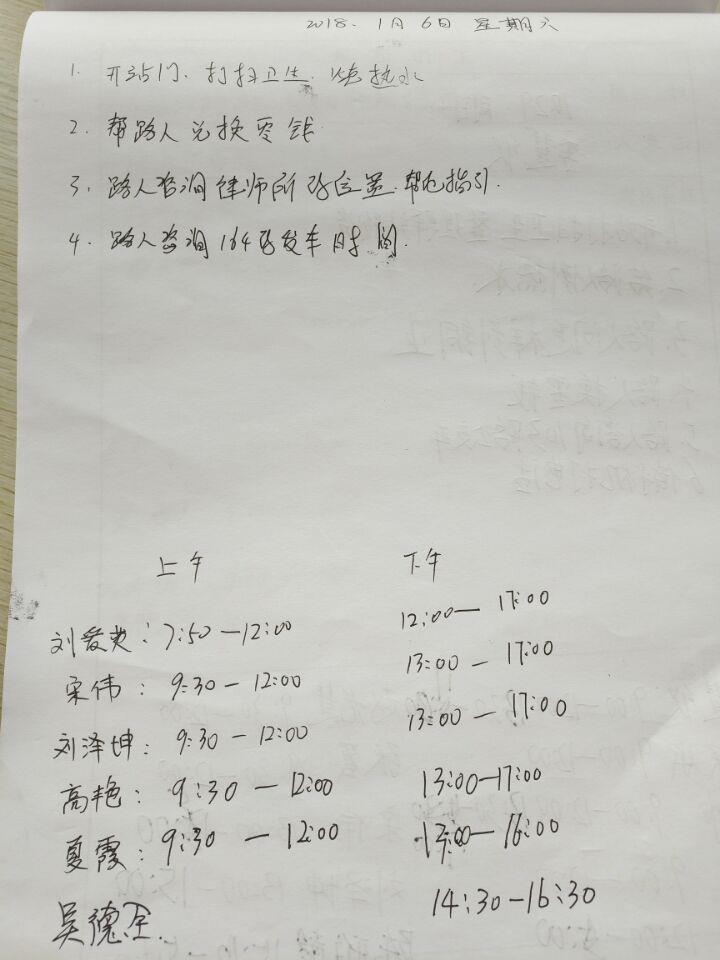 2018. 1月6日 星期六
1. 开站门、打扫卫生. 烧热水
2. 帮路人兑换零钱.
3. 路人咨询律师所的位置.帮忙指引.
4. 路人咨询164的发车时间.
上午 下午
刘爱英: 7:50—12:00 12:00— 17:00
宋伟: 9:30 — 12:00 13:00 — 17:00
刘泽坤: 9:30 — 12:00 13:00 — 17:00
高艳: 9:30 — 12:00 13:00—17:00
夏霞: 9:30 — 12:00 13:00— 16:00
吴德全. 14:30-16:30